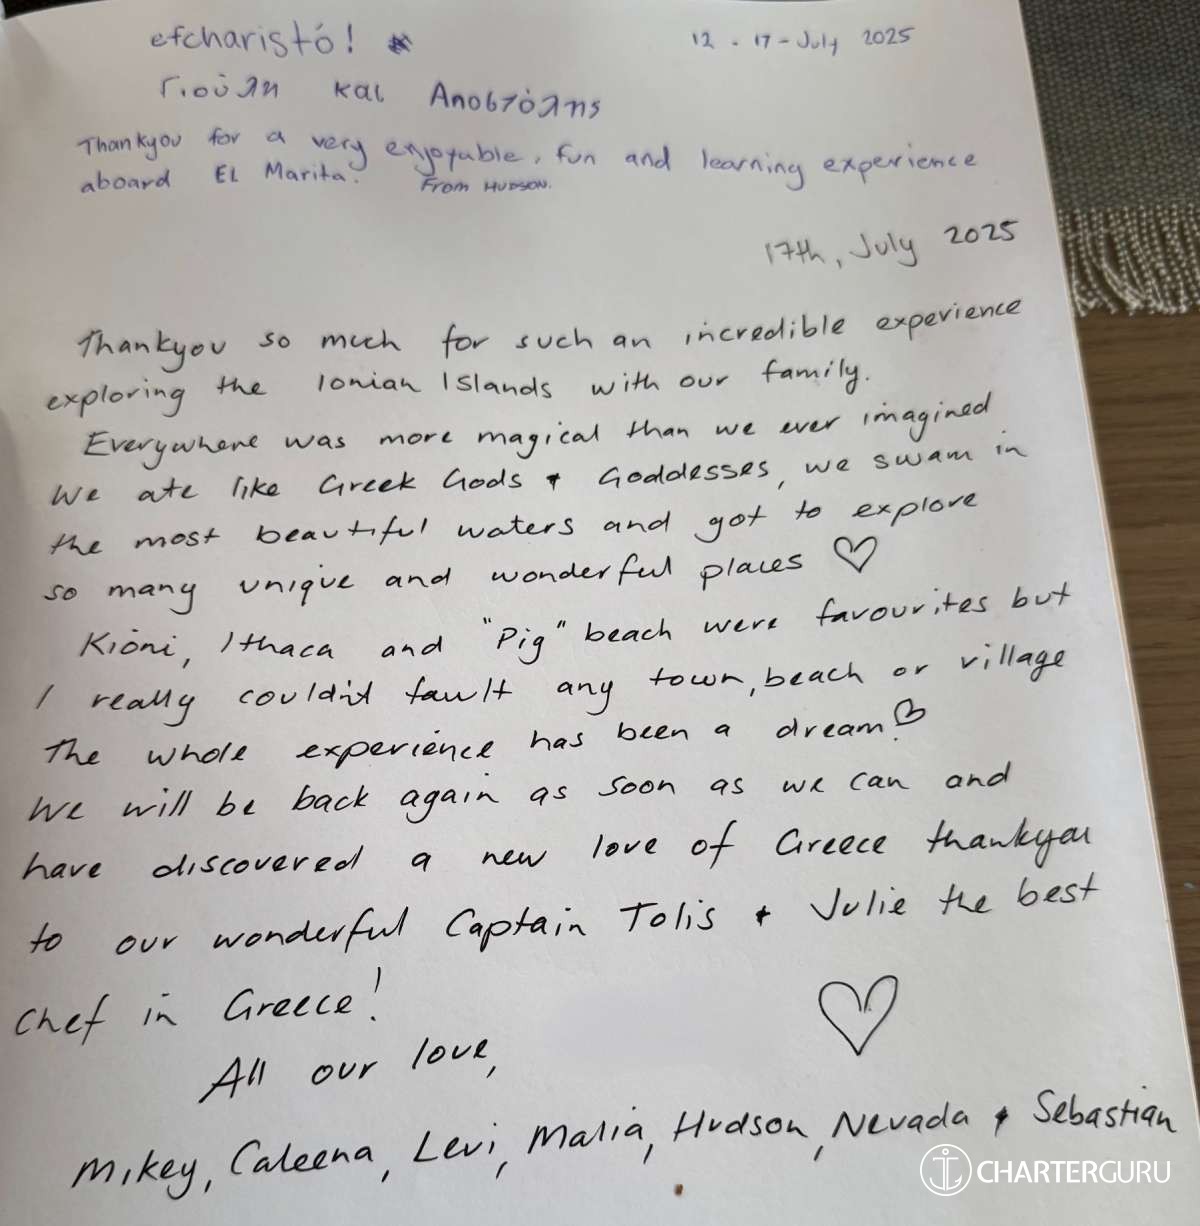 efcharistó!
12 - 17 - July 2025
Γιούλη και Αποστόλης
Thankyou for a very enjoyable, fun and learning experience
aboard EL Marita. From HUDSON.
17th, July 2025
Thankyou so much for such an incredible experience
exploring the Ionian Islands with our family.
Everywhere was more magical than we ever imagined
We ate like Greek Gods & Goddesses, we swam in
the most beautiful waters and got to explore
so many unique and wonderful places ♡
Kioni, Ithaca and "Pig" beach were favourites but
I really couldn't fault any town, beach or village
The whole experience has been a dream! ♡
We will be back again as soon as we can and
have discovered a new love of Greece thankyou
to our wonderful Captain Tolis & Julie the best
chef in Greece!
♡
All our love,
Mikey, Caleena, Levi, Malia, Hudson, Nevada & Sebastian
CHARTERGURU